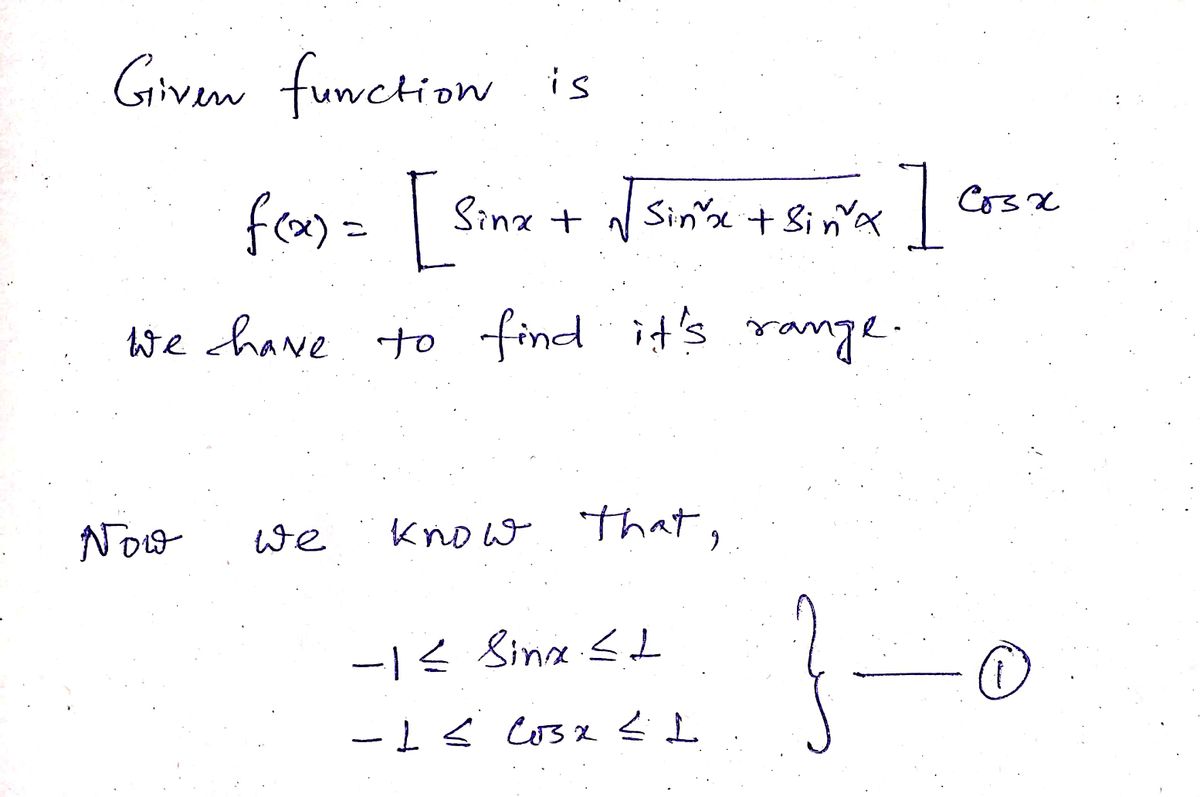 Given function is
f(x) = [ Sinx + √(Sin²x + Sin²α) ] Cosx
We have to find it's range.
Now we know that,
-1 ≤ Sinx ≤ 1
-1 ≤ Cosx ≤ 1 } — ①